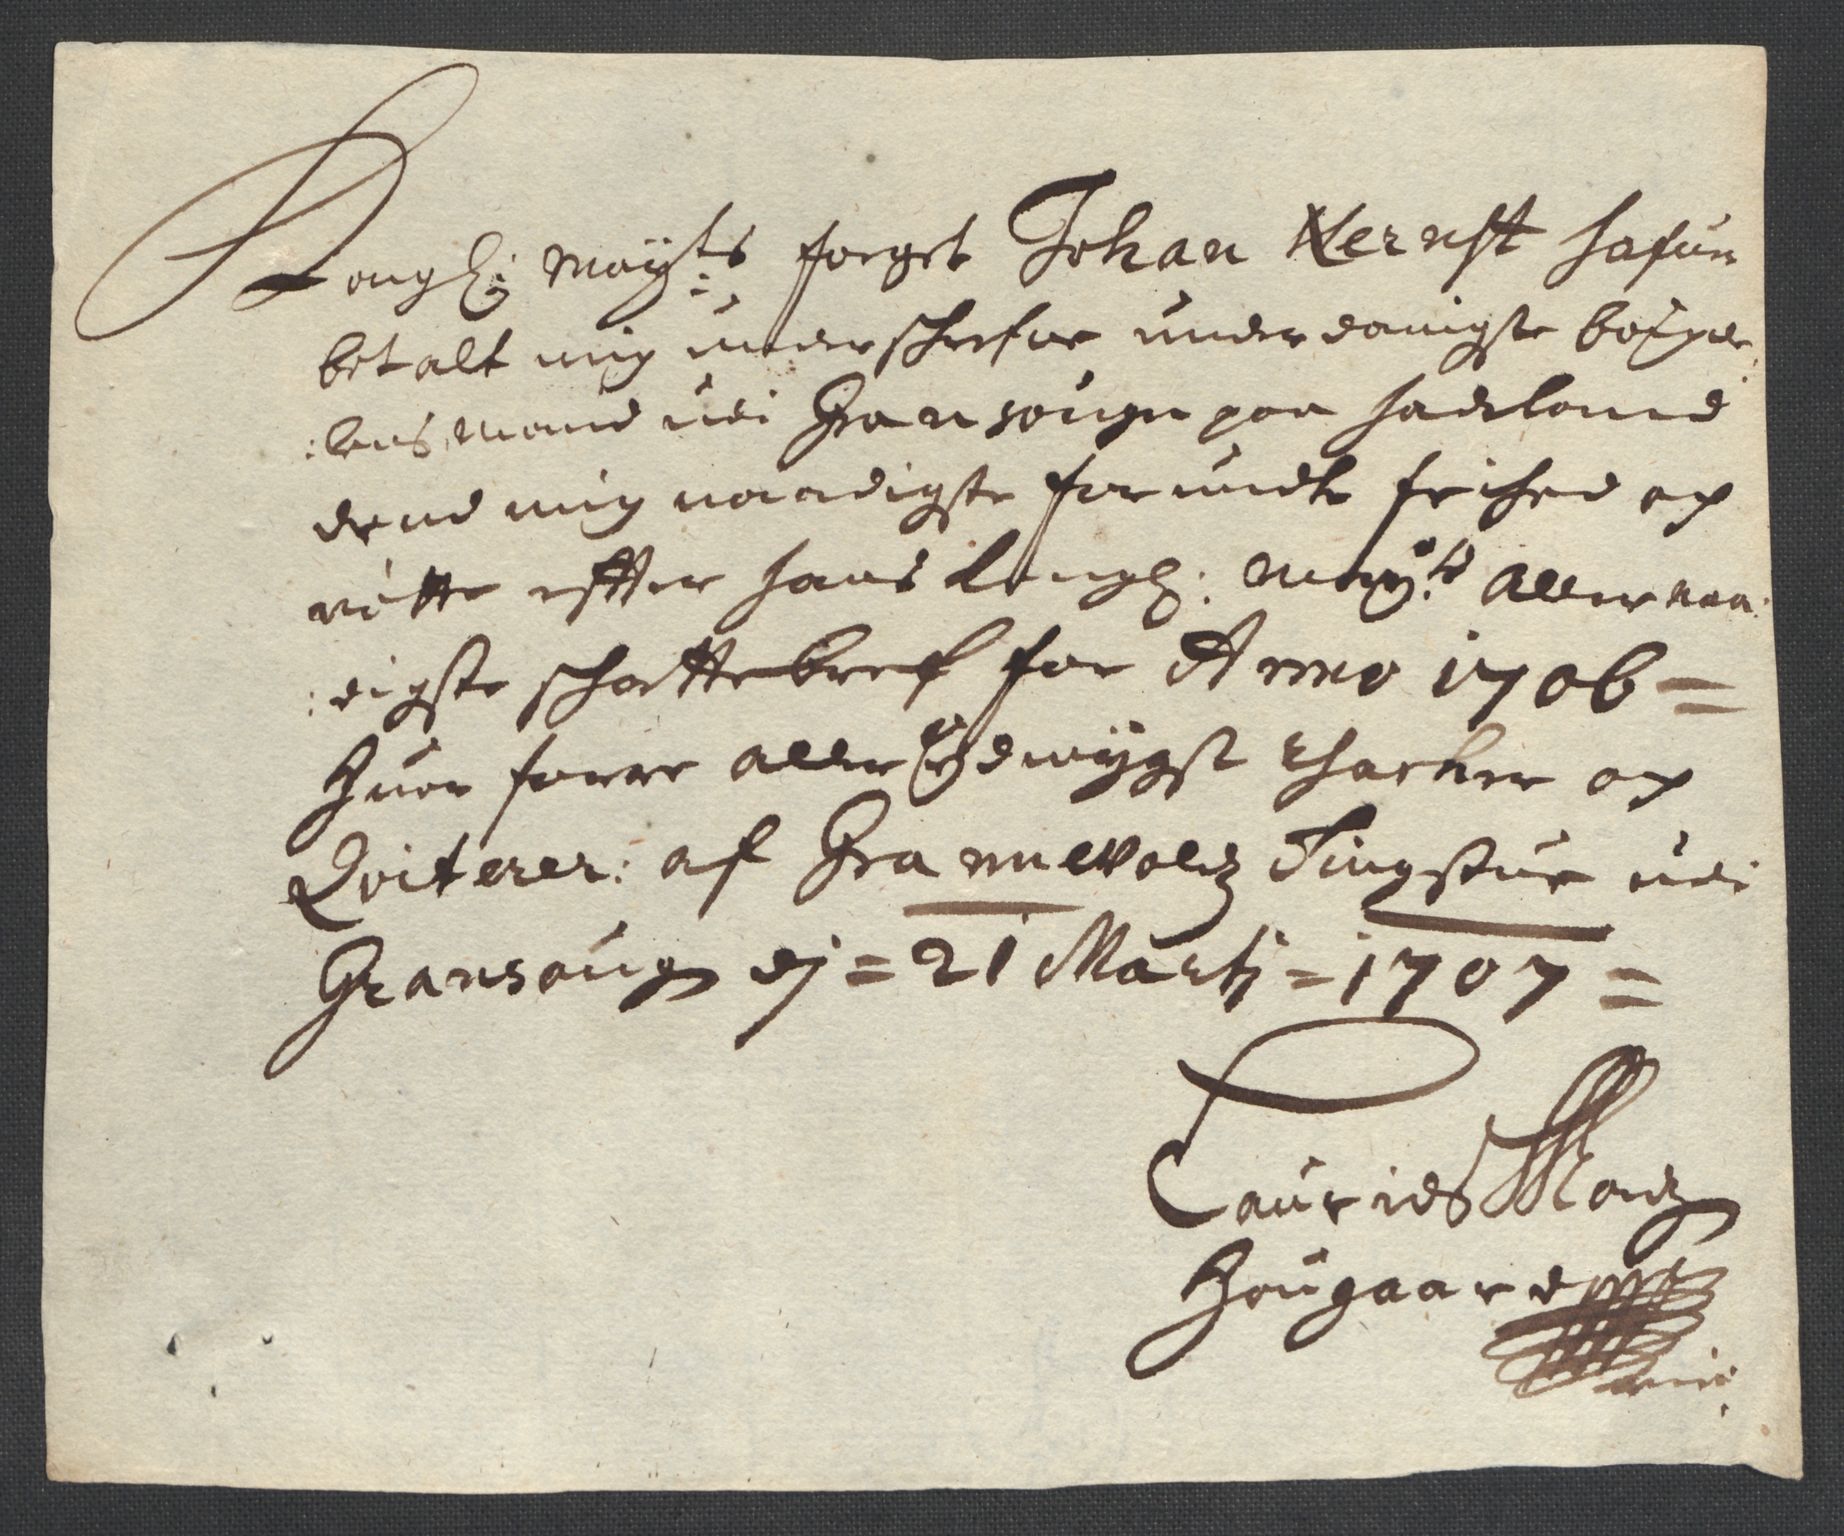 Kongl: Mayts: foeget Johan Kernst hafuer
betalt mig underschrefne underdanigste bøxsel
:lens mand udi Gran sougn paa Hadeland
dend mig naadigste forundte frihed og
rette effter hans Kongl: Mayts: Allernaa:
:digste schattebref for Anno 1706=
Huor forre allerødmygst thacher og
Qviterer: af Grannevoldz Tingstue udi
Gransougn dj = 21 Martj = 1707 =
Lauridz Madz
Hougaard